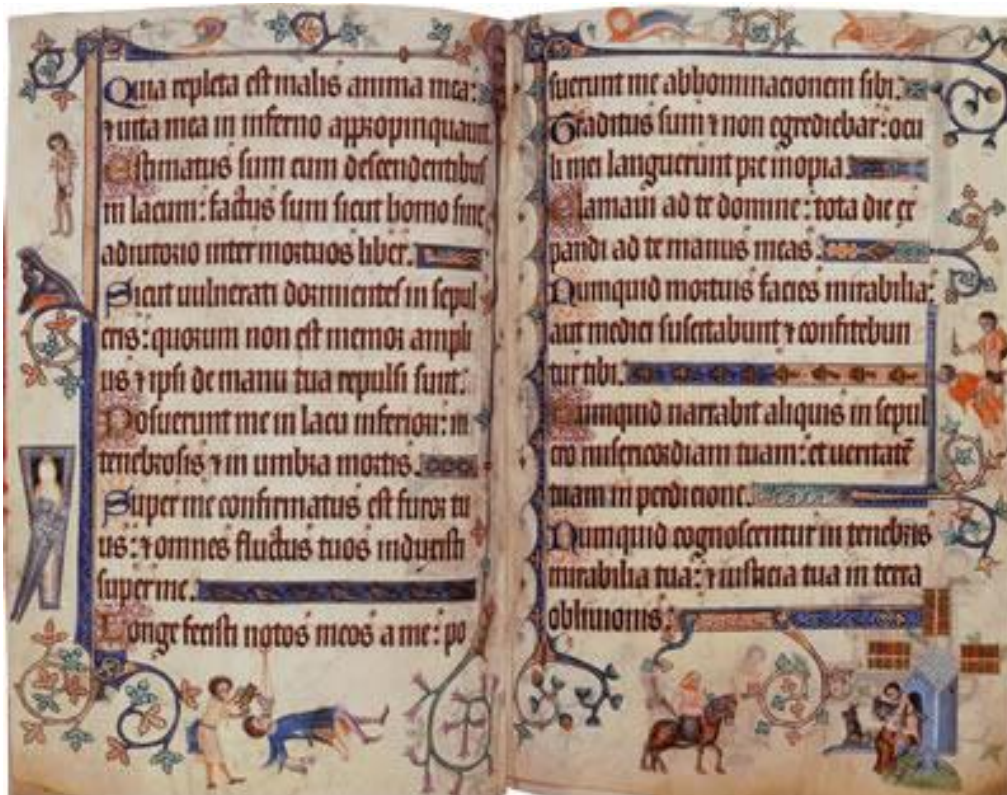 Quia repleta est malis anima mea:
⁊ uita mea in inferno appropinquauit
Estimatus sum cum descendentibus
in lacum: factus sum sicut homo sine
adiutorio inter mortuos liber.
Sicut uulnerati dormientes in sepul
cris: quorum non est memor ampli
us ⁊ ipsi de manu tua repulsi sunt.
Posuerunt me in lacu inferiori: in
tenebrosis ⁊ in umbra mortis.
Super me confirmatus est furor tu
us: ⁊ omnes fluctus tuos induxisti
super me.
Longe fecisti notos meos a me: po
suerunt me abhominacionem sibi.
Traditus sum ⁊ non egrediebar: ocu
li mei languerunt pre inopia.
Clamaui ad te domine: tota die ex
pandi ad te manus meas.
Numquid mortuis facies mirabilia:
aut medici suscitabunt ⁊ confitebun
tur tibi.
Numquid narrabit aliquis in sepul
cro misericordiam tuam: et ueritatē
tuam in perdicione.
Numquid cognoscentur in tenebris
mirabilia tua: ⁊ iusticia tua in terra
obliuionis: